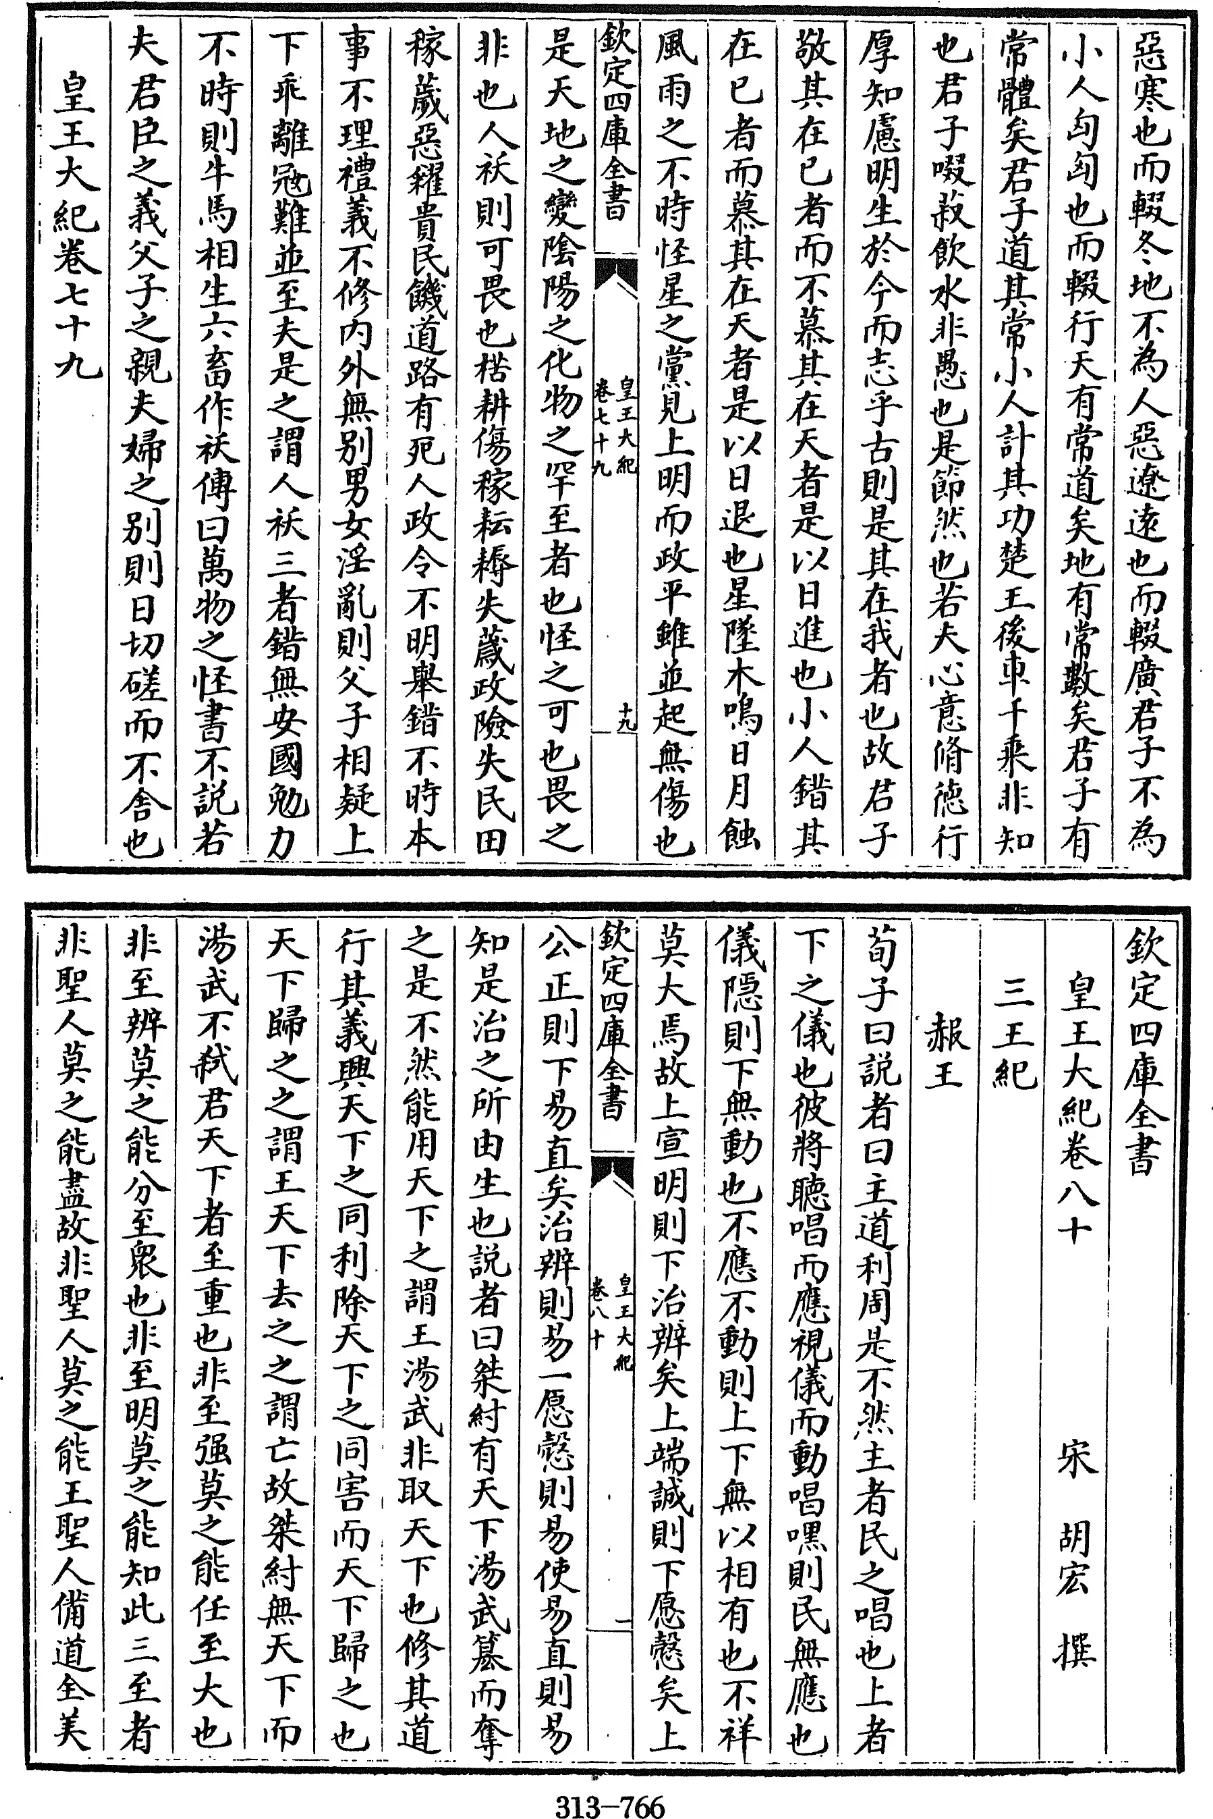 惡寒也而輟冬地不為人惡遼遠也而輟廣君子不為
小人匈匈也而輟行天有常道矣地有常數矣君子有
常體矣君子道其常小人計其功楚王後車千乘非知
也君子啜菽飲水非愚也是節然也若夫心意脩德行
厚知慮明生於今而志乎古則是其在我者也故君子
敬其在已者而不慕其在天者是以日進也小人錯其
在已者而慕其在天者是以日退也星墜木鳴日月蝕
風雨之不時怪星之黨見上明而政平雖並起無傷也
欽定四庫全書
皇王大紀
卷七十九
十九
是天地之變陰陽之化物之罕至者也怪之可也畏之
非也人祅則可畏也楛耕傷稼耘耨失薉政險失民田
稼薉惡糴貴民饑道路有死人政令不明舉錯不時本
事不理禮義不修内外無別男女淫亂則父子相疑上
下乖離冦難並至夫是之謂人祅三者錯無安國勉力
不時則牛馬相生六畜作祅傳曰萬物之怪書不説若
夫君臣之義父子之親夫婦之別則日切磋而不舍也
皇王大紀卷七十九
欽定四庫全書
皇王大紀卷八十 宋 胡宏 撰
三王紀
赧王
荀子曰説者曰主道利周是不然主者民之唱也上者
下之儀也彼將聽唱而應視儀而動唱嘿則民無應也
儀隱則下無動也不應不動則上下無以相有也不祥
莫大焉故上宣明則下治辨矣上端誠則下愿慤矣上
欽定四庫全書
皇王大紀
卷八十
一
公正則下易直矣治辨則易一愿慤則易使易直則易
知是治之所由生也説者曰桀紂有天下湯武簒而奪
之是不然能用天下之謂王湯武非取天下也修其道
行其義興天下之同利除天下之同害而天下歸之也
天下歸之之謂王天下去之之謂亡故桀紂無天下而
湯武不弑君天下者至重也非至强莫之能任至大也
非至辨莫之能分至衆也非至明莫之能知此三至者
非聖人莫之能盡故非聖人莫之能王聖人備道全美
313-766